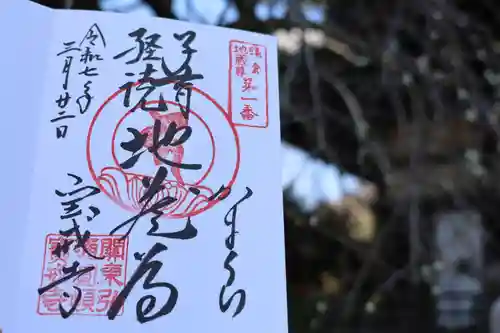 鎌倉
地蔵尊
第一番
かまくら
子育
経読
地蔵尊
令和七年
三月廿二日
宝戒寺